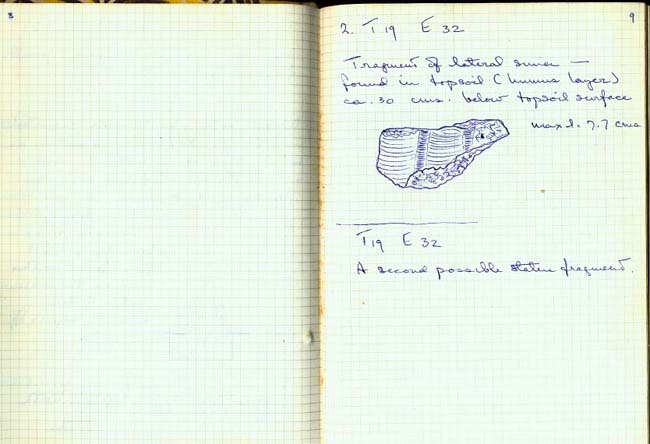 8
9
2. T 19 E 32
Fragment of lateral sima —
found in topsoil (humus layer)
ca. 30 cms. below topsoil surface
max l. 7.7 cms
T 19 E 32
A second possible statue fragment.